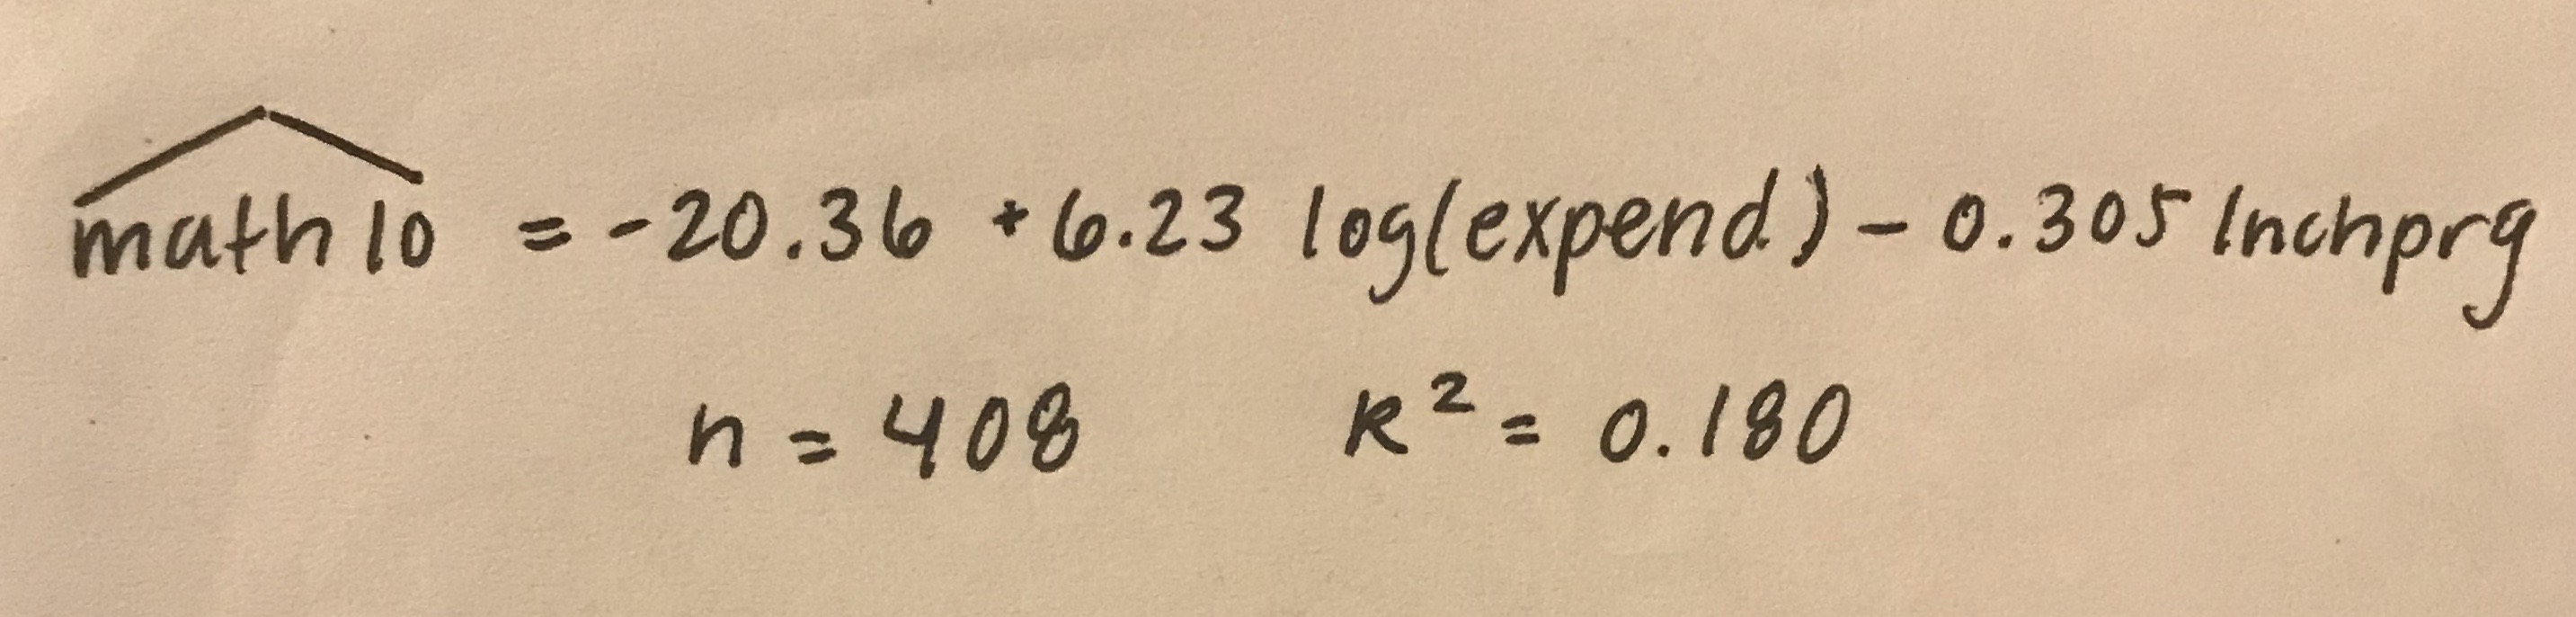 math10 = -20.36 + 6.23 log(expend) - 0.305 lnchprg
n = 408 R² = 0.180